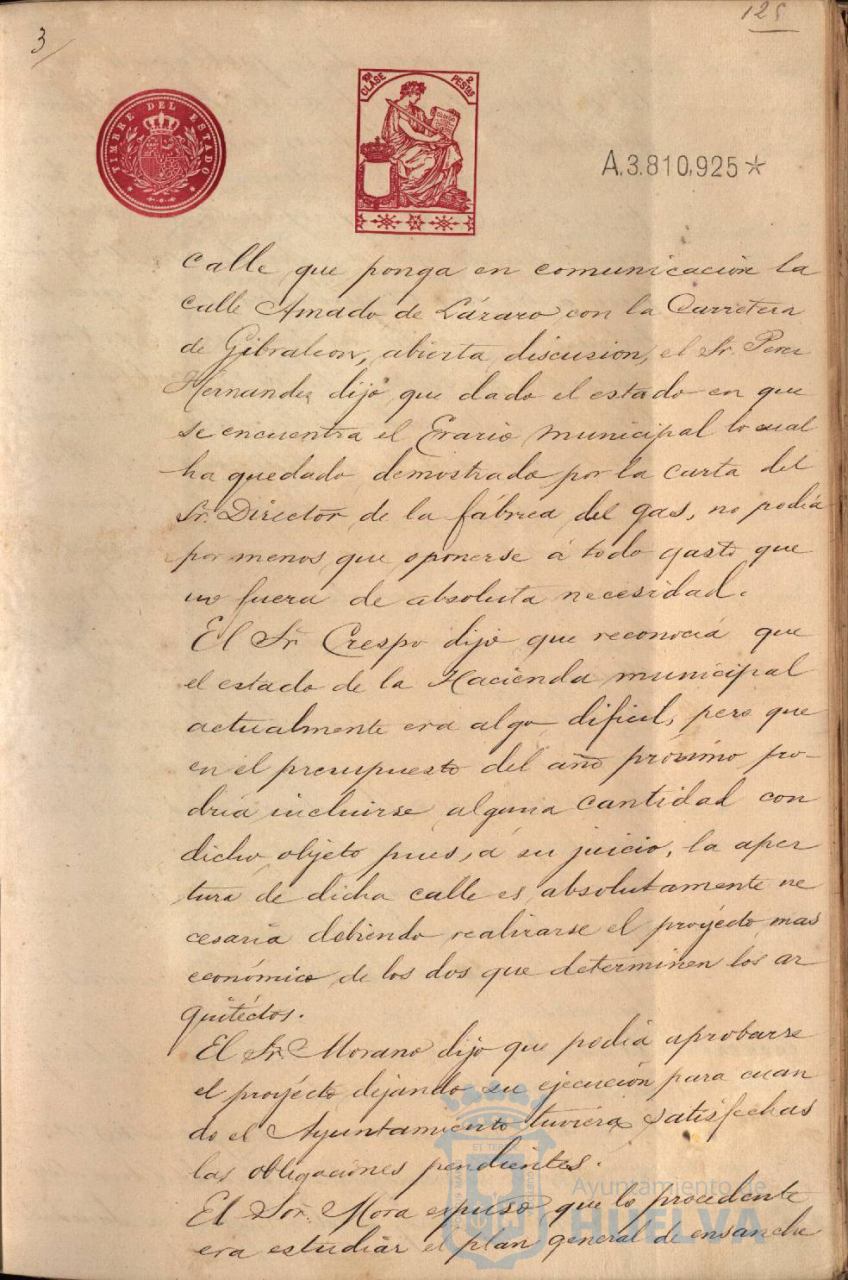 3
125
TIMBRE DEL ESTADO
10ª CLASE 2 PESTAS
A.3.810,925*
calle que ponga en comunicación la
calle Amado de Lázaro con la Carretera
de Gibraleon, abierta discusion, el Sr. Perez
Hernandez dijo que dado el estado en que
se encuentra el Erario municipal lo cual
ha quedado demostrado por la carta del
Sr. Director de la fábrica del gas, no podía
por menos que oponerse á todo gasto que
no fuera de absoluta necesidad.
El Sr. Crespo dijo que reconocia que
el estado de la Hacienda municipal
actualmente era algo dificil, pero que
en el presupuesto del año próximo po-
dría incluirse alguna cantidad con
dicho objeto pues, á su juicio, la aper
tura de dicha calle es absolutamente ne
cesaria debiendo realizarse el proyécto mas
económico de los dos que determinen los ar
quitéctos.
El Sr. Morano dijo que podia aprobarse
el proyécto dejando su ejecución para cuan
do el Ayuntamiento tuviera satisfechas
las obligaciones pendientes.
El Sor. Mora expuso que lo procedente
era estudiar el plan general de ensanche
Ayuntamiento de
HUELVA